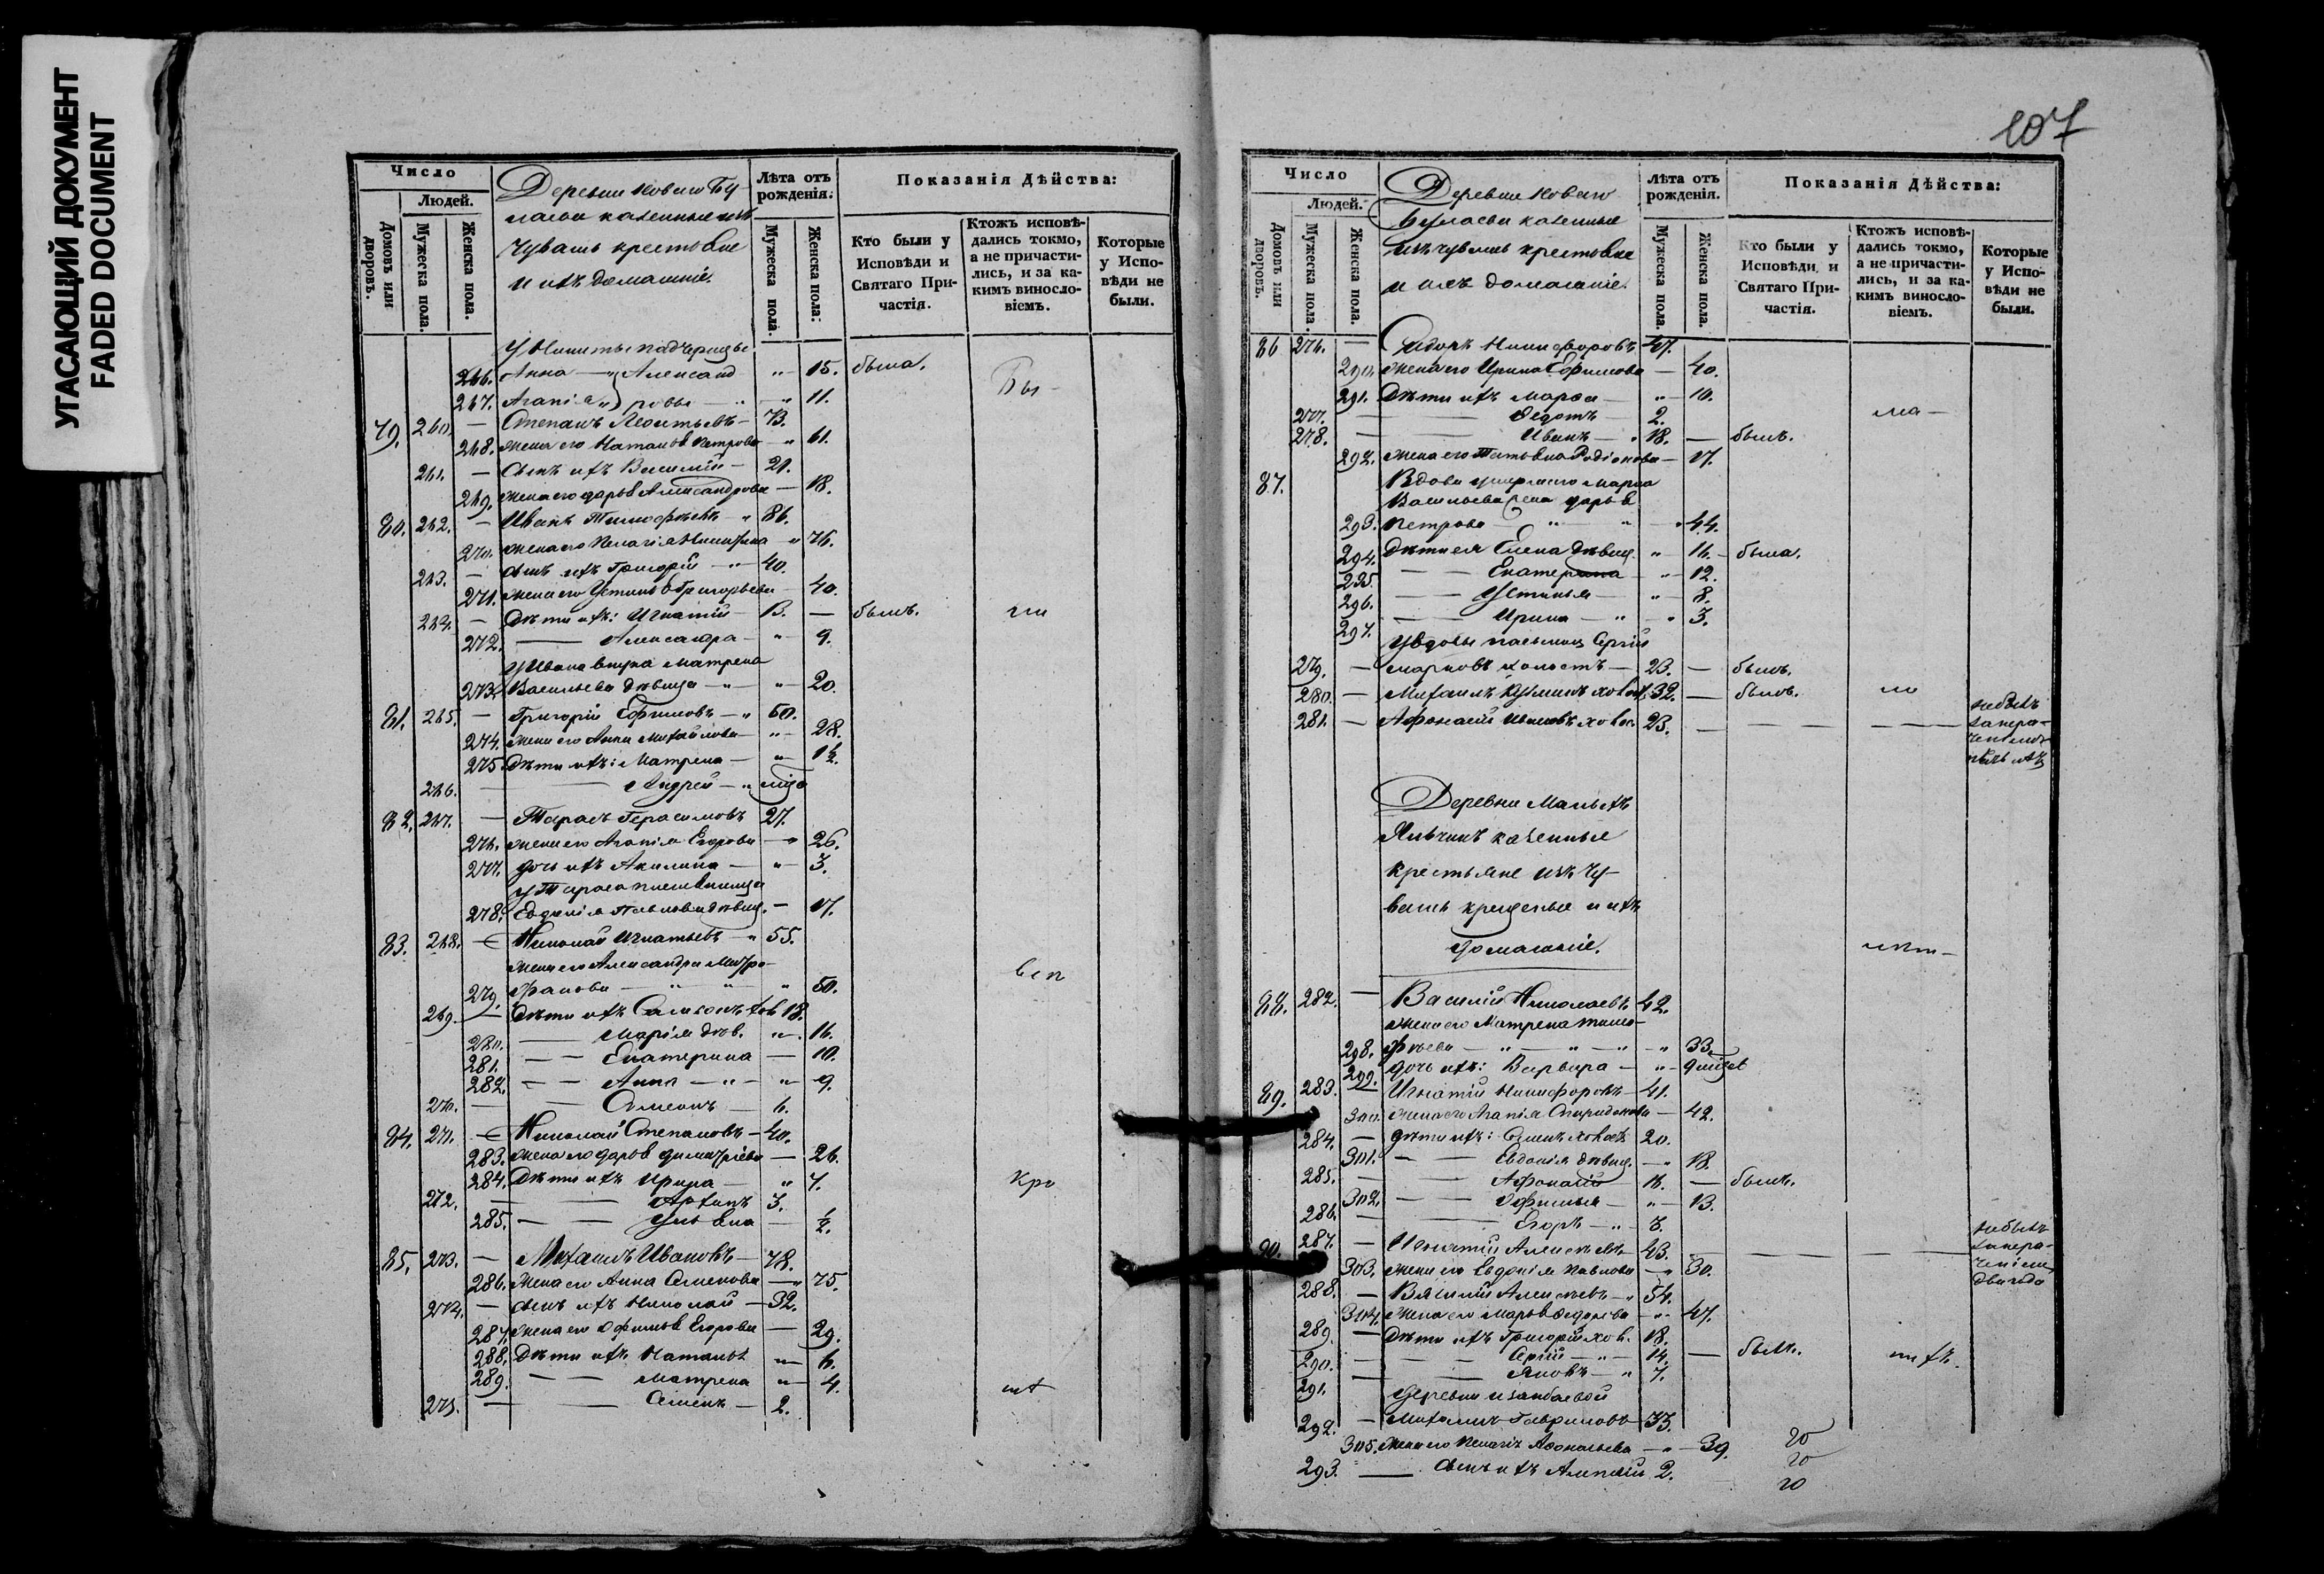 УГАСАЮЩИЙ ДОКУМЕНТ
FADED DOCUMENT
Число
Людей.
Домовъ или дворовъ.
Мужеска пола.
Женска пола.
Деревни Новаго Бу-
лаева казенные изъ
чувашъ крестьяне
и ихъ домашніе.
Лѣта отъ рожденія:
Мужеска пола.
Женска пола:
Показанія Дѣйства:
Кто были у Исповѣди и Святаго Причастія.
Ктожъ исповѣдались токмо, а не причастились, и за какимъ винословіемъ.
Которые у Исповѣди не были.
У Никиты падчерицы
266. Анна — Александ- " 15. была.
Бы-
267. Агапія " ровы — " 11.
79. 260. — Степанъ Леонтьевъ — 73.
268. жена его Наталья Петрова — " 61.
261. — сынъ ихъ Василій — 21.
269. жена его Дарья Александрова — 18.
80. 262. — Иванъ Тимофѣевъ — " 86.
270. жена его Пелагія Никитина " 76.
263. — сынъ ихъ Григорій — " 40.
271. жена его Устинья Григорьева — 40.
264. — Дѣти ихъ: Игнатій — 13. — былъ. ли
272. — Александра — " 9.
У Ивана внука Матрена
273. Васильева дѣвица — " — " 20.
81. 265. — Григорій Ефимовъ — " 50.
274. жена его Анна Михайлова — " 28.
275 Дѣти ихъ: Матрена — " 1½.
266. — Андрей — "
82. 267. — Тарасъ Герасимовъ 27.
276. жена его Агапія Егорова — " 26.
277. дочь ихъ Акилина — " 3.
У Тараса племянница
278. Евдокія Павлова дѣвиц. — 17.
83. 268. — Николай Игнатьевъ — " 55.
жена его Александра Митро-
279. фанова — " — " — " 50.
всп
269. — Дѣти ихъ Самсонъ хол. 18.
280. — Марія дѣв. " 16.
281. — — Екатерина — 10.
282. — — Анна — " — " 9.
270. — — Симеонъ — 6.
84. 271. — Николай Степановъ — 40.
283. жена его Дарья Димитріева — 26.
284. Дѣти ихъ Ирина — " 7.
кре
272. — — 3.
285. — — Ульяна — ½.
85. 273. — Михаилъ Ивановъ — 78.
286. жена его Анна Семенова — " 75.
274. — сынъ ихъ Николай — 32.
287. жена его Офимья Егорова — 29.
288. Дѣти ихъ Наталья " 6.
289. — — Матрена " 4.
275. — — Семенъ — 2.
107
Число
Людей.
Домовъ или дворовъ.
Мужеска пола.
Женска пола.
Деревни Новаго
Булаева казенные
изъ чувашъ крестьяне
и ихъ домашніе.
Лѣта отъ рожденія.
Мужеска пола.
Женска пола.
Показанія Дѣйства:
Кто были у Исповѣди и Святаго Причастія.
Ктожъ исповѣдались токмо, а не причастились, и за какимъ винословіемъ.
Которые у Исповѣди не были.
86 276. — Сидоръ Никифоровъ 47.
290. жена его Ирина Ефимова — 40.
291. Дѣти ихъ Марфа — " 10.
277. — — Федотъ — 2.
278. — — Иванъ — " 18. — былъ.
292. жена его Татьяна Родіонова — 17.
87. Вдова умершаго Марка
Васильева жена Дарья
293. Петрова — " — " — " 44.
294. Дѣти ея Елена дѣвиц. " 16. — была.
295. — — Екатерина — " 12.
296. — — Устинья — " 8.
297. — — Ирина — " — " 3.
У вдовы пасынокъ Сергій
279. — Марковъ холостъ — 23. — былъ.
280. — Михаилъ Кузминъ холос. 32. — былъ.
281. — Афонасій Ивановъ холос. 23. — — —
не былъ
Деревни Малыхъ
Яльчикъ казенные
крестьяне изъ чу-
вашъ крещеные и ихъ
домашніе.
88. 282. — Василій Николаевъ 42.
жена его Матрена Тимо-
298. фѣева — " — " — " 33.
299. дочь ихъ: Варвара — "
89. 283. — Игнатій Никифоровъ — 41.
300. жена его Агапія Спиридонова — 42.
284. — Дѣти ихъ: Семенъ холос. 20.
301. — — Евдокія дѣвиц. — " 18.
285. — — Афонасій — 16. — былъ.
302. — — Офимья — " — 13.
286. — — Егоръ — " 8.
90. 287. — Игнатій Алексѣевъ — 43. — — —
не былъ
два года
303. жена его Евдокія Павлова — " 30.
288. — Василій Алексѣевъ — " 54.
304. жена его Марья Федорова — " 47.
289. — Дѣти ихъ Григорій хол. 18.
290. — — Сергій — " 14. — былъ.
291. — — Яковъ — " 7.
292. — Михаилъ Гавриловъ 33.
305. жена его Пелагія Афонасьева — " 39.
293. — сынъ ихъ Алексѣй 2.